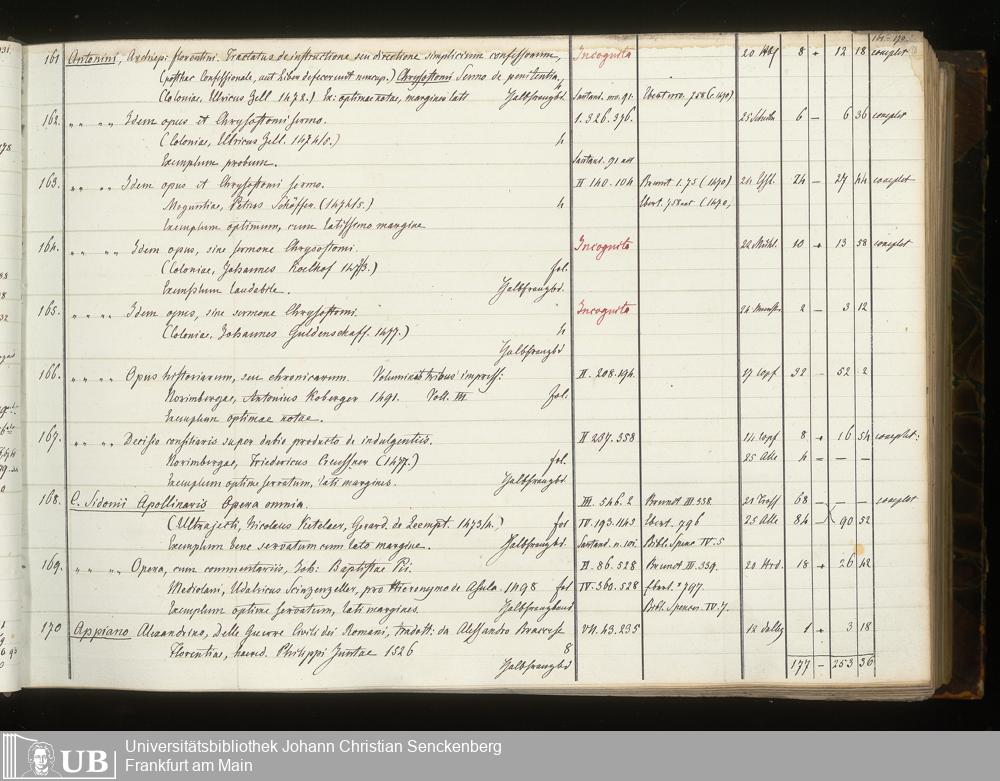 161-170.
161 Antonini, Archiepi florentini. Tractatus de instructione seu directione simplicium confessorum, Incognita 20 8 12 18 complet
(posthac Confessionale, aut Liber defecerunt nuncup.) Chrysostomi Sermo de penitentia,
(Coloniae, Ulricus Zell 1472.) Ex: optimae notae, margines lati Halbfranzbd Santand. no. 91. Ebert nro. 758 (c. 1470)
162. " " " Idem opus et Chrysostomi sermo. 1.326.376. 25 6 — 6 36 complet
(Coloniae, Ulricus Zell. 1474/5.) 4
Exemplum probum. Santand. 91
163. " " Idem opus et Chrysostomi sermo. II 140.104 Brunet 1.75 (1470) 24 24 — 27 44 complet
Moguntiae, Petrus Schöffer. (1474/5.) 4 Ebert. 758 (1470)
Exemplum optimum, cum latissimo margine
164. " " " Idem opus, sine sermone Chrysostomi. Incognita 22 10 13 58 complet
(Coloniae, Johannes Koelhof 1472/3.) fol.
Exemplum laudabile. Halbfranzbd.
165. " " " Idem opus, sine sermone Chrysostomi. Incognita 24 2 — 3 12
(Coloniae, Johannes Guldenschaff. 1477.) 4
Halbfranzbd
166. " " " Opus historiarum, seu chronicarum. Voluminib tribus impress: II. 208.194. 27 32 — 52 2
Norimbergae, Antonius Koberger 1491. Voll. III. fol.
Exemplum optimae notae.
167. " " " Decisio consiliaris super dubio producto de indulgentiis. II 237.358 14 8 16 54 complet:
Norimbergae, Friedericus Creussner (1477.) fol. 25 4 — — —
Exemplum optime servatum, lati margines. Halbfranzbd.
168. C. Sidonii Apollinaris Opera omnia. III. 546.2 Brunet III.338. 21 68 — — — complet
(Ultrajecti, Nicolaus Ketelaer, Gerard. de Leempt. 1473/4.) fol IV.193.1143 Ebert. 796 25 84 90 52
Exemplum bene servatum cum lato margine. Halbfranzbd. Santand. n. 101 Bibl. Spenc IV. 5
169. " " " Opera, cum commentariis, Joh: Baptistae Pii. VI. 86.528 Brunet III.339. 20 18 26 42
Mediolani, Udalricus Scinzenzeller, pro Hieronymo de Asula. 1498 fol IV. 360.528 Ebert. 797.
Exemplum optime servatum, lati margines. Halbfranzband Bibl. Spencer. IV. 7.
170 Appiano Alexandrino, Delle Guerre Civili dei Romani, tradott: da Alessandro Braccese VII. 43.235 12 1 3 18
Florentiae, haered. Philippi Juntae 1526 8
Halbfranzbd 177 — 253 36
UB Universitätsbibliothek Johann Christian Senckenberg
Frankfurt am Main